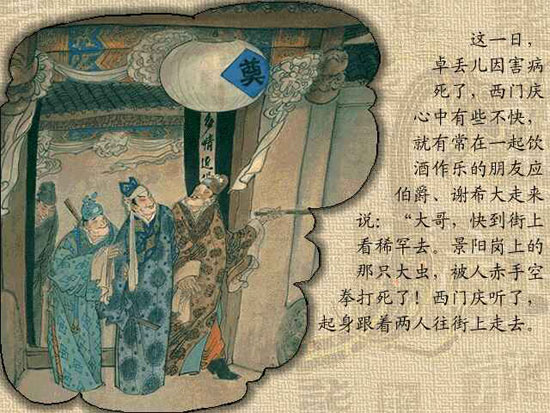 奠
这一日，
卓丢儿因害病
死了，西门庆
心中有些不快，
就有常在一起饮
酒作乐的朋友应
伯爵、谢希大走来
说：“大哥，快到街上
看稀罕去。景阳岗上的
那只大虫，被人赤手空
拳打死了！西门庆听了，
起身跟着两人往街上走去。